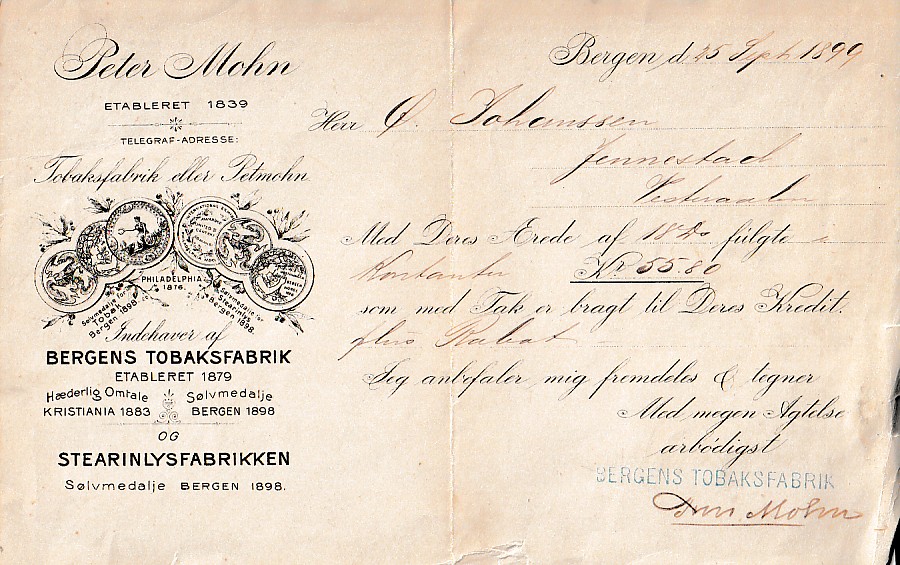 Peter Mohn
ETABLERET 1839
TELEGRAF-ADRESSE:
Tobaksfabrik eller Petmohn.
PHILADELPHIA
1876.
Sølvmedalje for
Tobak
Bergen 1898
Sølvmedalje for
Stearinlys
Bergen 1898.
Indehaver af
BERGENS TOBAKSFABRIK
ETABLERET 1879
Hæderlig Omtale
KRISTIANIA 1883
Sølvmedalje
BERGEN 1898
OG
STEARINLYSFABRIKKEN
Sølvmedalje BERGEN 1898.
Bergen, d. 25 Sept 1899
Herr O. Johanssen
Jennestad
Vesteraalen
Med Deres Ærede af 18 ds fulgte
Kontanter Kr 55.80
som med Tak er bragt til Deres Kredit.
plus Rabat
Jeg anbefaler mig fremdeles & tegner
Med megen Agtelse
ærbødigst
BERGENS TOBAKSFABRIK
Mohn